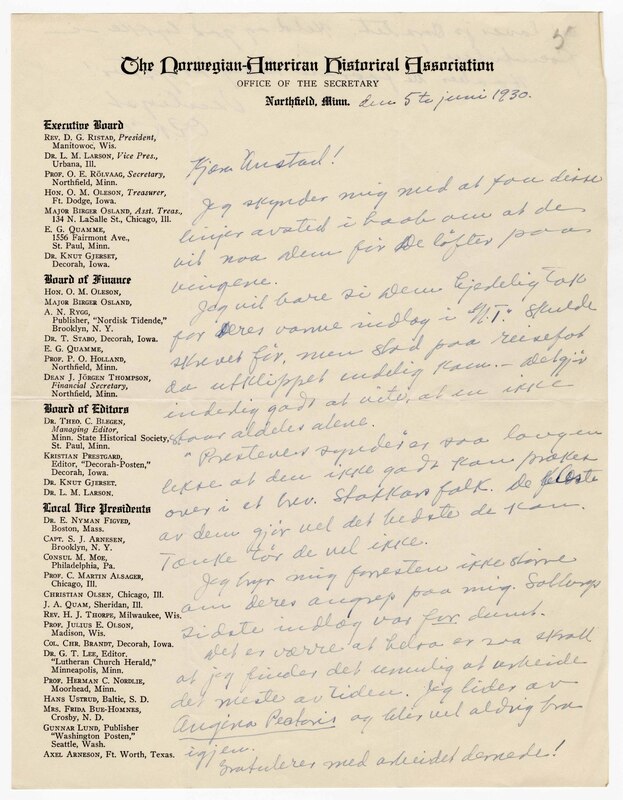 The Norwegian-American Historical Association
OFFICE OF THE SECRETARY
Northfield, Minn. den 5te juni 1930.
5
Executive Board
REV. D. G. RISTAD, President,
Manitowoc, Wis.
DR. L. M. LARSON, Vice Pres.,
Urbana, Ill.
PROF. O. E. RÖLVAAG, Secretary,
Northfield, Minn.
HON. O. M. OLESON, Treasurer,
Ft. Dodge, Iowa.
MAJOR BIRGER OSLAND, Asst. Treas.,
134 N. LaSalle St., Chicago, Ill.
E. G. QUAMME,
1556 Fairmont Ave.,
St. Paul, Minn.
DR. KNUT GJERSET,
Decorah, Iowa.
Board of Finance
HON. O. M. OLESON,
MAJOR BIRGER OSLAND,
A. N. RYGG,
Publisher, "Nordisk Tidende,"
Brooklyn, N. Y.
DR. T. STABO, Decorah, Iowa.
E. G. QUAMME,
PROF. P. O. HOLLAND,
Northfield, Minn.
DEAN J. JÖRGEN THOMPSON,
Financial Secretary,
Northfield, Minn.
Board of Editors
DR. THEO. C. BLEGEN,
Managing Editor,
Minn. State Historical Society,
St. Paul, Minn.
KRISTIAN PRESTGARD,
Editor, "Decorah-Posten,"
Decorah, Iowa.
DR. KNUT GJERSET.
DR. L. M. LARSON.
Local Vice Presidents
DR. E. NYMAN FIGVED,
Boston, Mass.
CAPT. S. J. ARNESEN,
Brooklyn, N. Y.
CONSUL M. MOE,
Philadelphia, Pa.
PROF. C. MARTIN ALSAGER,
Chicago, Ill.
CHRISTIAN OLSEN, Chicago, Ill.
J. A. QUAM, Sheridan, Ill.
REV. H. J. THORPE, Milwaukee, Wis.
PROF. JULIUS E. OLSON,
Madison, Wis.
COL. CHR. BRANDT, Decorah, Iowa.
DR. G. T. LEE, Editor,
"Lutheran Church Herald,"
Minneapolis, Minn.
PROF. HERMAN C. NORDLIE,
Moorhead, Minn.
HANS USTRUD, Baltic, S. D.
MRS. FRIDA BUE-HOMNES,
Crosby, N. D.
GUNNAR LUND, Publisher
"Washington Posten,"
Seattle, Wash.
AXEL ARNESEN, Ft. Worth, Texas.
Kjære Anstad!
Jeg skynder mig med at faa disse
linjer avsted i haab om at de
vil naa Dem før De løfter paa
vingene.
Jeg vil bare si Dem hjedelig tak
for Deres varme indlæg i
skrevet før, men stod paa reisefot
da utklippet endelig kom. Det gjør
inderlig godt at vite, at en ikke
staar aldeles alene.
"Prestenes synder" er saa lang en
lekse at den ikke godt kan prækes
over i et brev. Stakkars folk. De fleste
av dem gjør vel det bedste de kan.
Tænke tør de vel ikke.
Jeg bryr mig forresten ikke større
om Deres angrep paa mig. Solbergs
sidste indlæg var for dumt.
Det er værre at helsa er saa skrall
at jeg finder det umulig at arbeide
det meste av tiden. Jeg lider av
Angina Pectoris og blir vel aldrig bra
igjen.
Gratulerer med arbeidet dernede!